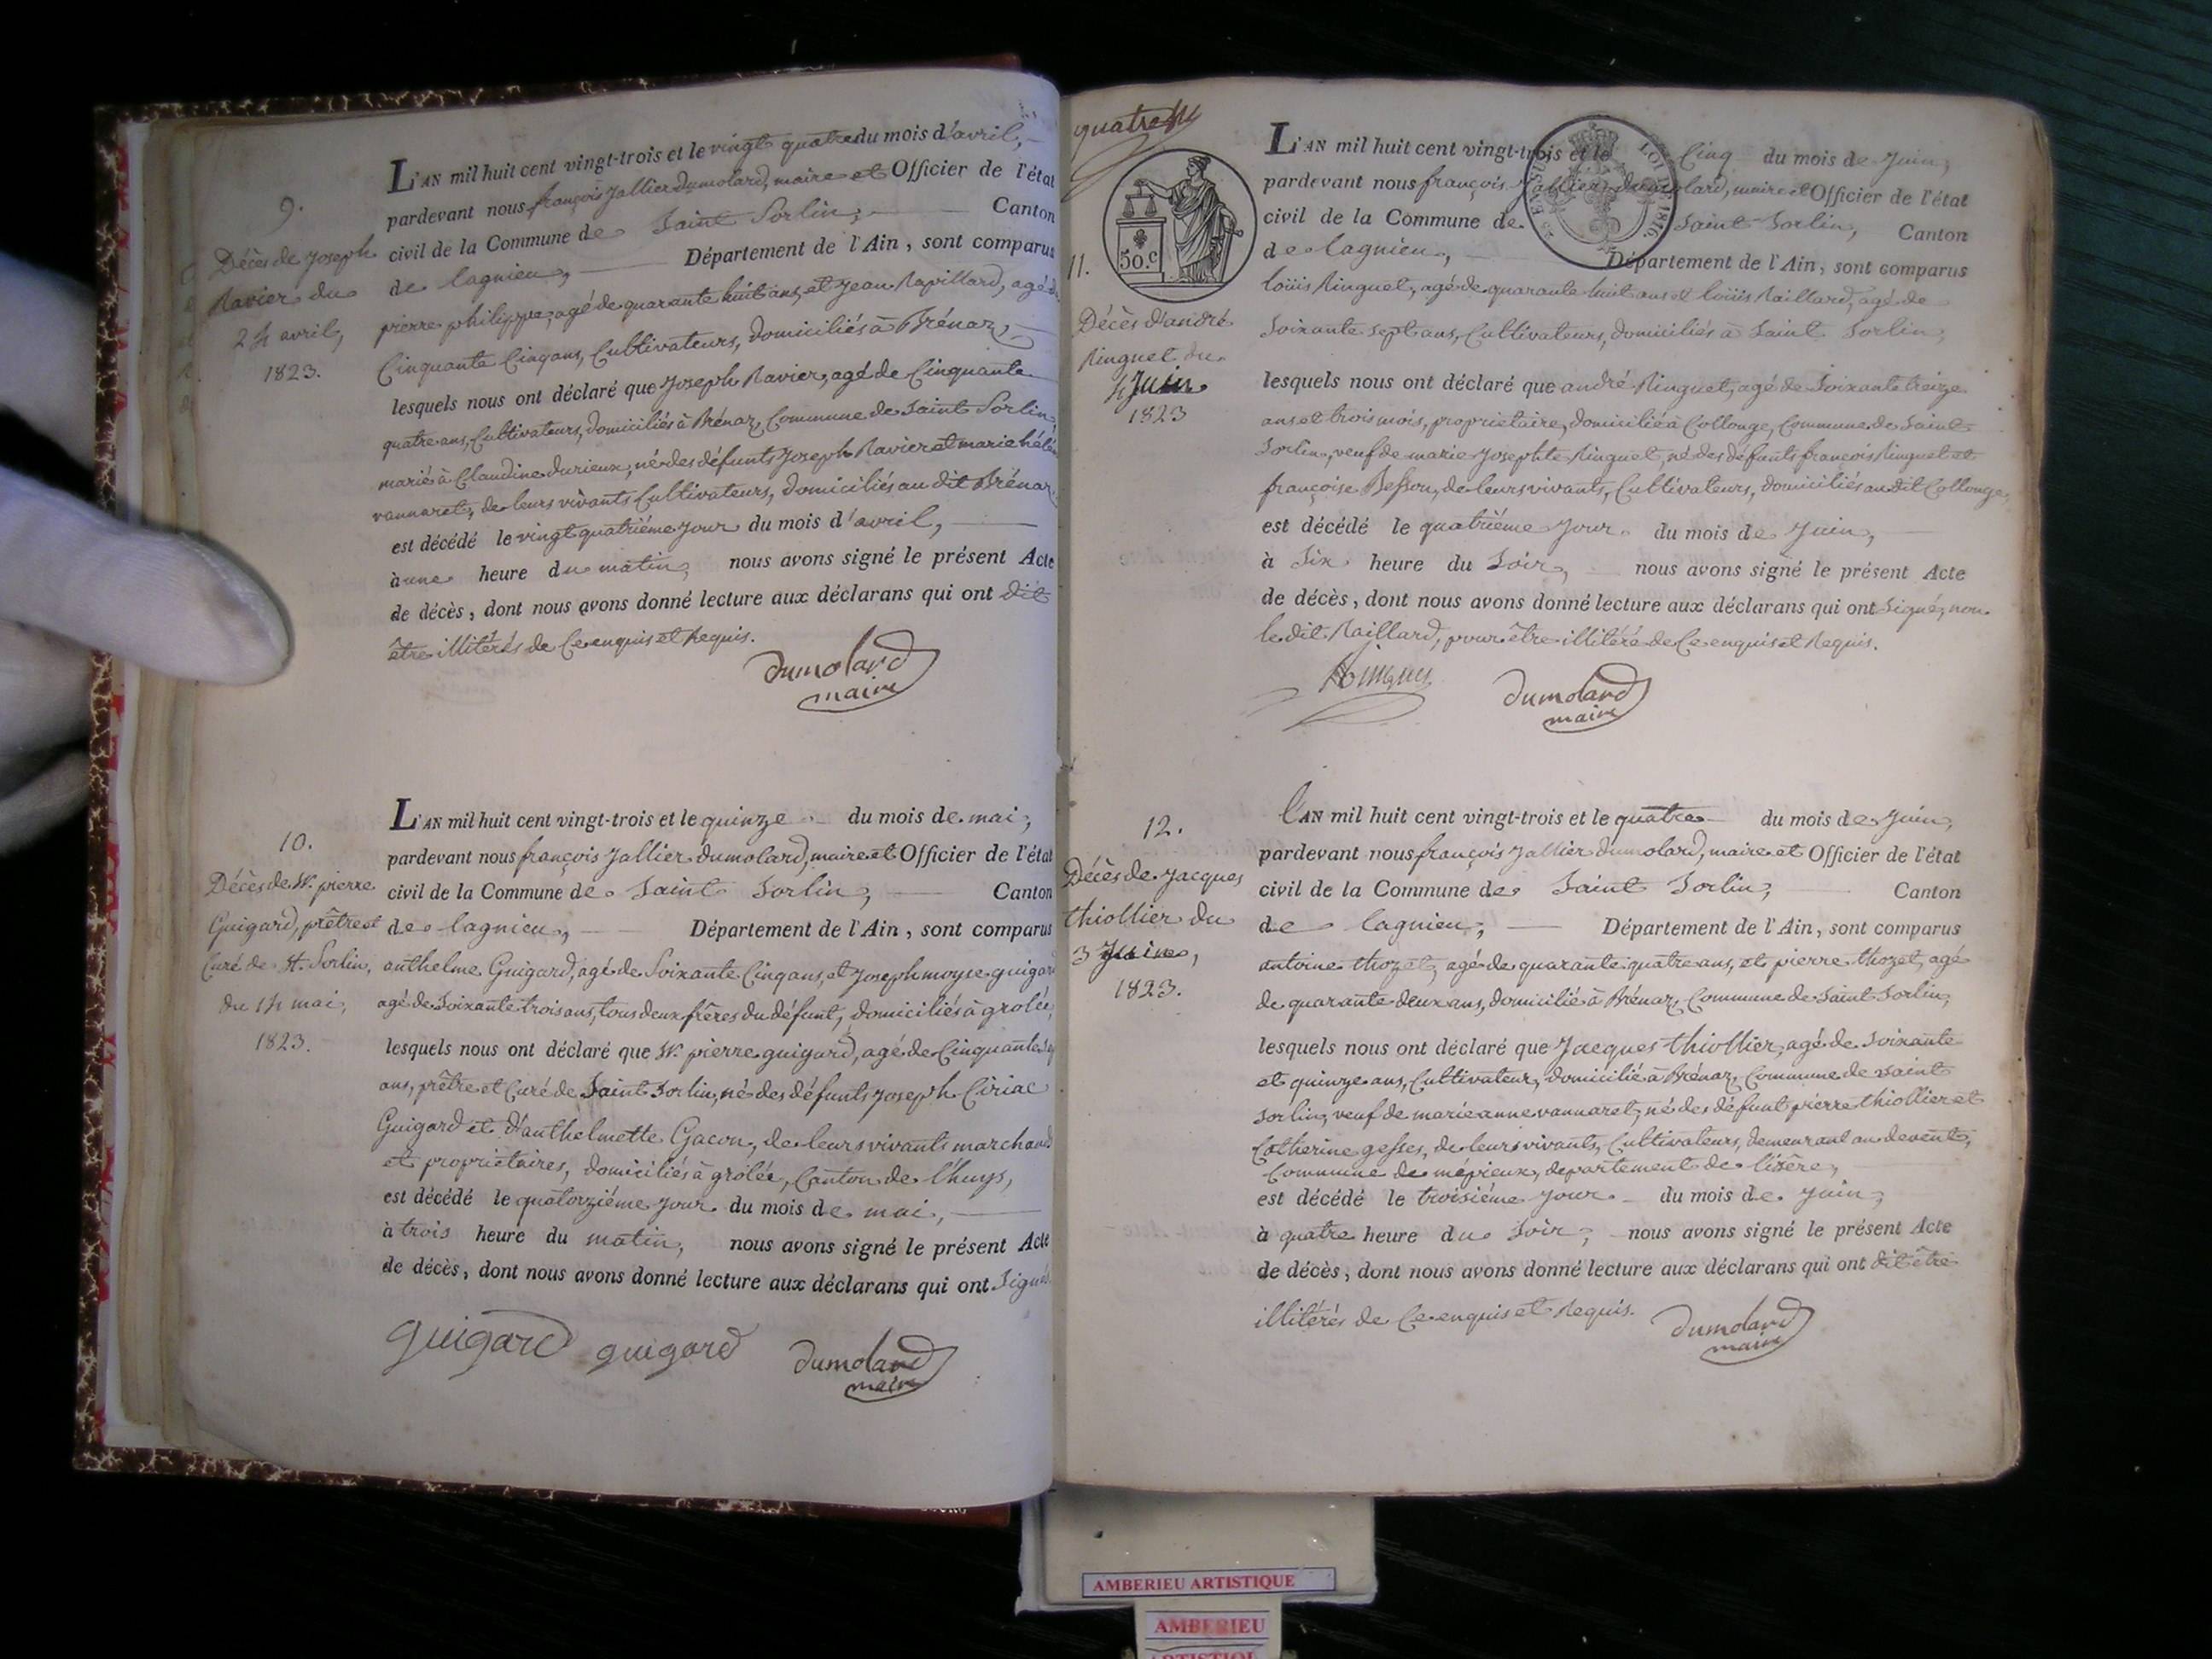 9.
Décès de Joseph
Ravier du
24 avril,
1823.
L'AN mil huit cent vingt-trois et le vingt quatre du mois d'avril,
pardevant nous françois Jallier dumolard, maire et Officier de l'état
civil de la Commune de Saint Sorlin, Canton
de lagnieu, Département de l'Ain, sont comparus
pierre philippe, agé de quarante huit ans, et Jean Rapillard, agé de
Cinquante Cinq ans, Cultivateurs, domiciliés à Brénaz,
lesquels nous ont déclaré que Joseph Ravier, agé de Cinquante
quatre ans, Cultivateurs, domiciliés à Brénaz, Commune de Saint Sorlin,
marié à Claudine durieux, né des défunts Joseph Ravier et marie hélène
vannaret, de leurs vivants Cultivateurs, domiciliés au dit Brénaz
est décédé le vingt quatriéme jour du mois d'avril,
à une heure du matin, nous avons signé le présent Acte
de décès, dont nous avons donné lecture aux déclarans qui ont dit
être illitérés de Ce enquis et Requis.
dumolard
maire
10.
Décès de Mr. pierre
Guigard, prêtre et
Curé de St. Sorlin,
du 14 mai,
1823.
L'AN mil huit cent vingt-trois et le quinze du mois de mai,
pardevant nous françois Jallier dumolard, maire et Officier de l'état
civil de la Commune de Saint Sorlin, Canton
de lagnieu, Département de l'Ain, sont comparus
anthelme Guigard, agé de Soixante Cinq ans, et Joseph moyse guigard
agé de Soixante trois ans, tous deux frères du défunt, domiciliés à grolée,
lesquels nous ont déclaré que Mr. pierre guigard, agé de Cinquante
ans, prêtre et Curé de Saint Sorlin, né des défunts Joseph Ciriac
Guigard et d'anthelmette Gacon, de leurs vivants marchands
et propriétaires, domiciliés à grôlée, Canton de l'huys,
est décédé le quatorziéme jour du mois de mai,
à trois heure du matin, nous avons signé le présent Acte
de décès, dont nous avons donné lecture aux déclarans qui ont Signés.
guigard guigard dumolard
maire
quatre
50.c
LOI DE 1816.
11.
Décès d'andré
Ringuet du
4 Juin
1823
L'AN mil huit cent vingt-trois et le Cinq du mois de Juin,
pardevant nous françois Jallier dumolard, maire et Officier de l'état
civil de la Commune de Saint Sorlin, Canton
de lagnieu, Département de l'Ain, sont comparus
loüis Ringuet, agé de quarante huit ans et loüis Raillard, agé de
Soixante Sept ans, Cultivateurs, domiciliés à Saint Sorlin,
lesquels nous ont déclaré que andré Ringuet, agé de Soixante treize
ans et trois mois, propriétaire, domicilié à Collonge, Commune de Saint
Sorlin, veuf de marie Josephte Ringuet, né des défunts françois Ringuet et
françoise Besson, de leurs vivants, Cultivateurs, domiciliés au dit Collonge,
est décédé le quatriéme Jour du mois de Juin,
à Six heure du Soir, nous avons signé le présent Acte
de décès, dont nous avons donné lecture aux déclarans qui ont Signé, non
le dit Raillard, pour être illitéré de Ce enquis et Requis.
Ringuet dumolard
maire
12.
Décès de Jacques
thiollier du
3 Juin,
1823.
L'AN mil huit cent vingt-trois et le quatre du mois de Juin,
pardevant nous françois Jallier dumolard, maire et Officier de l'état
civil de la Commune de Saint Sorlin, Canton
de lagnieu, Département de l'Ain, sont comparus
antoine thozet, agé de quarante quatre ans, et pierre thozet, agé
de quarante deux ans, domicilié à Brénaz, Commune de Saint Sorlin,
lesquels nous ont déclaré que Jacques thiollier, agé de Soixante
et quinze ans, Cultivateur, domicilié à Brénaz, Commune de saint
Sorlin, veuf de marie anne vannaret, né des défunt pierre thiollier et
Catherine gesses, de leurs vivants, Cultivateurs, demeurant au devent,
Commune de mépieux, département de l'isère,
est décédé le troisiéme jour du mois de Juin,
à quatre heure du Soir, nous avons signé le présent Acte
de décès, dont nous avons donné lecture aux déclarans qui ont dit être
illitérés de Ce enquis et Requis.
dumolard
maire
AMBERIEU ARTISTIQUE
AMBERIEU
ARTISTIQUE